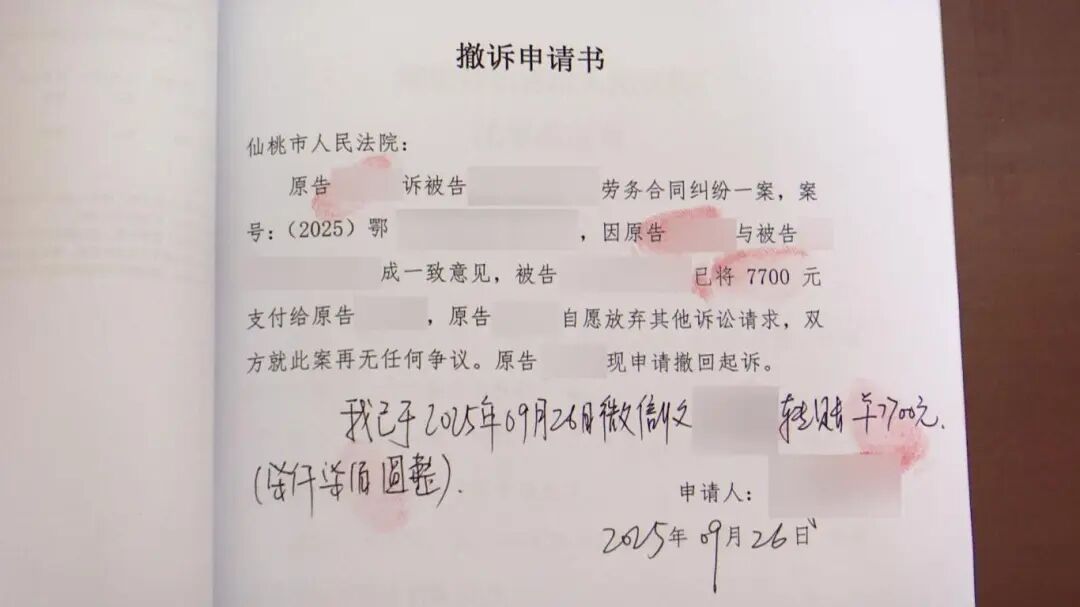 撤诉申请书
仙桃市人民法院：
原告 诉被告 劳务合同纠纷一案，案
号：（2025）鄂 ，因原告 与被告
成一致意见，被告 已将 7700 元
支付给原告 ，原告 自愿放弃其他诉讼请求，双
方就此案再无任何争议。原告 现申请撤回起诉。
我已于2025年09月26日微信收 转账 7700元.
(柒仟柒佰圆整).
申请人：
2025年09月26日